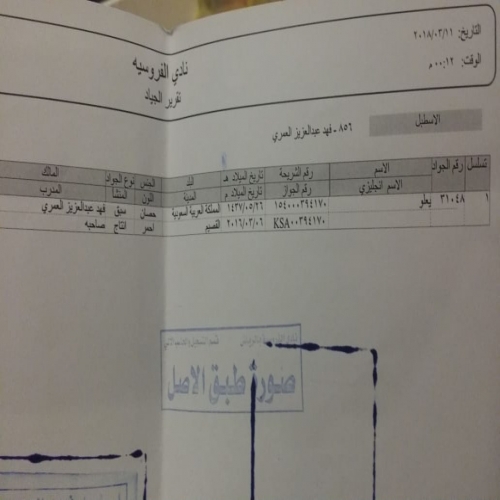 التاريخ: ٢٠١٨/٠٣/١١
الوقت: ٠٠:١٢ م
نادي الفروسيه
تقرير الجياد
الاسطبل
٨٥٦ - فهد عبدالعزيز العمري
تسلسل رقم الجواد الاسم رقم الشريحة تاريخ الميلاد هـ البلد الجنس نوع الجواد المالك
الاسم انجليزي رقم الجواز تاريخ الميلاد م المدينة اللون المنشأ المدرب
١ ٣١٠٤٨ يعلو ١٥٤٠٠٠٣٩٤١٧٠ ١٤٣٧/٠٥/٢٦ المملكة العربية السعودية حصان سبق فهد عبدالعزيز العمري
KSA٠٠٣٩٤١٧٠ ٢٠١٦/٠٣/٠٦ القصيم احمر انتاج صاحبه
صورة طبق الاصل